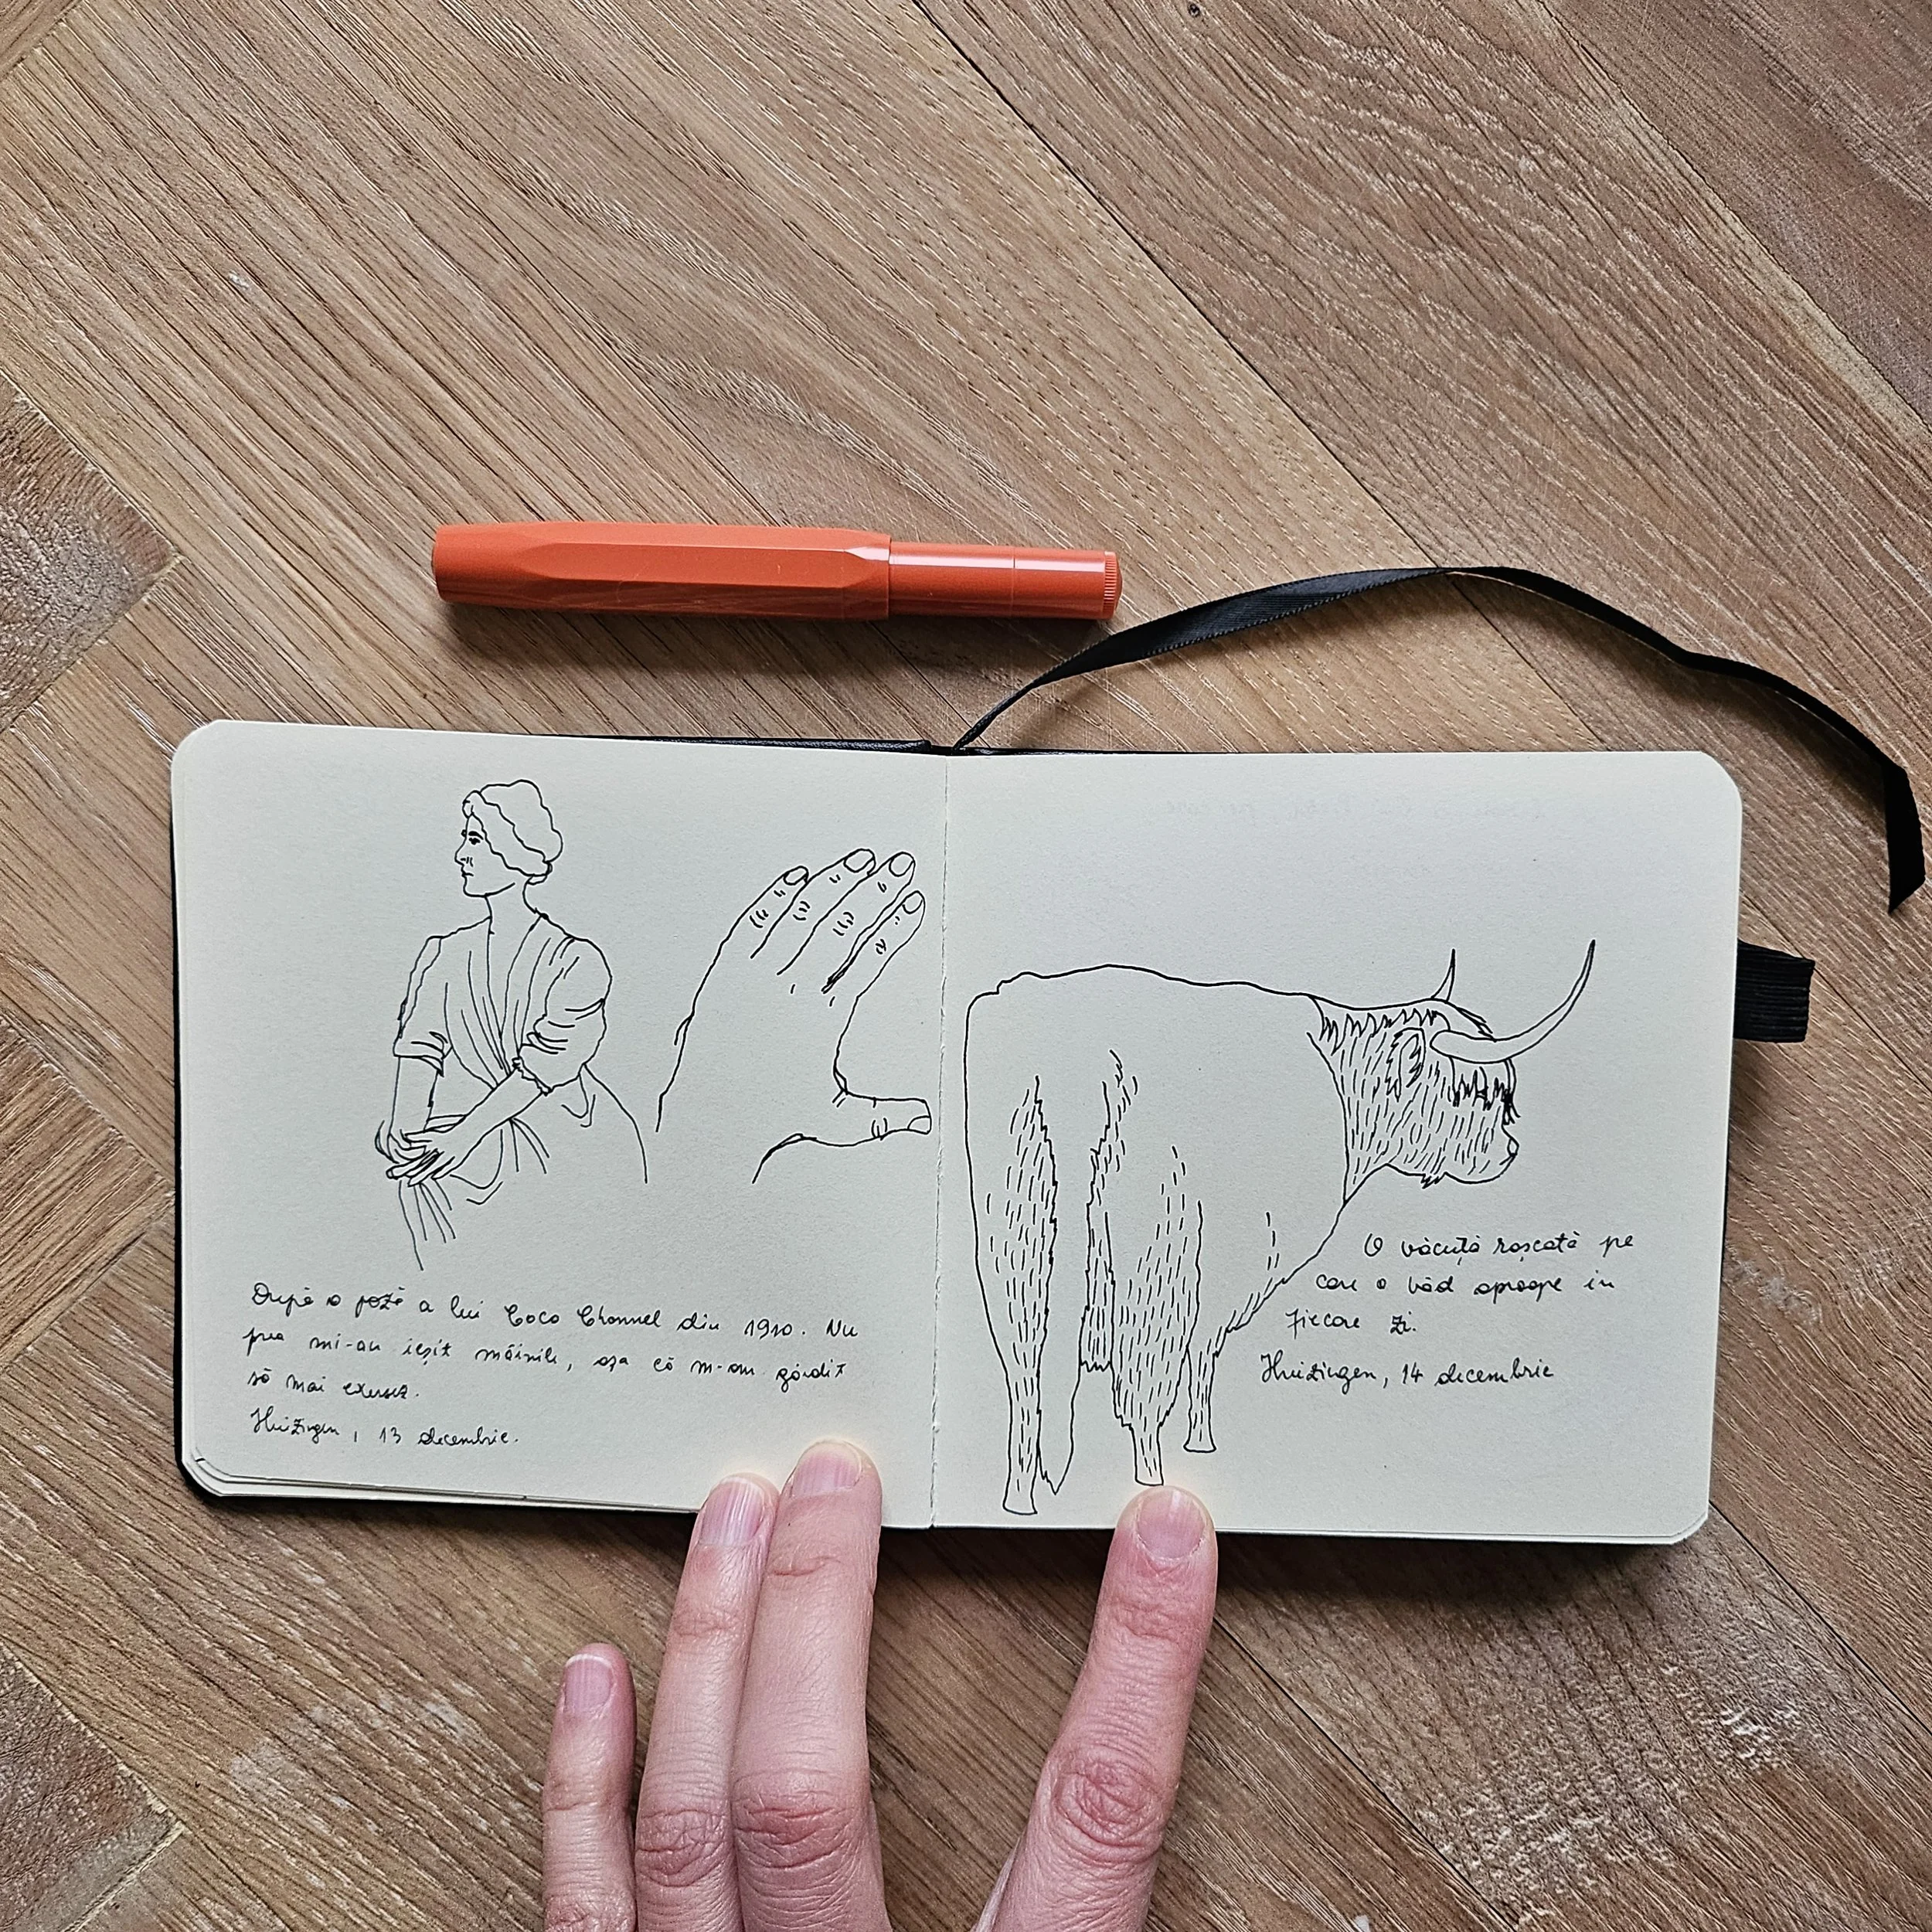 După o poză a lui Coco Channel din 1910. Nu
prea mi-au ieșit mâinile, așa că m-am gândit
să mai exersez.
Huizingen, 13 decembrie.
O văcuță roșcată pe
care o văd aproape în
fiecare zi.
Huizingen, 14 decembrie